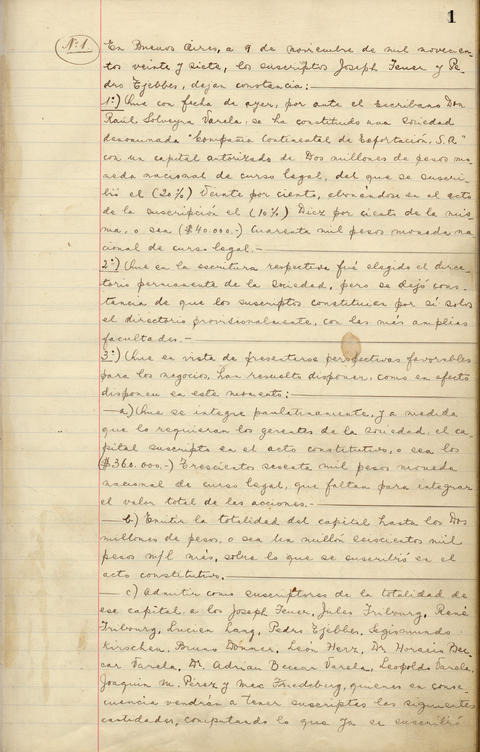 1
Nº 1.
En Buenos Aires, a 9 de noviembre de mil novecien-
tos veinte y siete, los suscriptos Joseph Feuer y Pe-
dro Ezebbes, dejan constancia:
1º) Que con fecha de ayer, por ante el Escribano Don
Raúl Solveyra Varela, se ha constituido una Sociedad
denominada "Compañía Continental de Exportación, S.A."
con un capital autorizado de Dos millones de pesos mo-
neda nacional de curso legal, del que se suscri-
bió el (20%) Veinte por ciento, abonándose en el acto
de la suscripción el (10%) Diez por ciento de la mis-
ma, o sea ($40.000.-) Cuarenta mil pesos moneda na-
cional de curso legal.-
2º) Que en la escritura respectiva fué elegido el direc-
torio permanente de la Sociedad, pero se dejó cons-
tancia de que los suscriptos constituían por sí solos
el directorio provisionalmente, con las más amplias
facultades.-
3º) Que en vista de presentarse perspectivas favorables
para los negocios, han resuelto disponer, como en efecto
disponen en este momento:
— a) Que se integre paulatinamente, y a medida
que lo requieran los gerentes de la Sociedad, el ca-
pital suscripto en el acto constitutivo, o sea los
($360.000.-) Trescientos sesenta mil pesos moneda
nacional de curso legal, que faltan para integrar
el valor total de las acciones.-
— b) Emitir la totalidad del capital hasta los Dos
millones de pesos, o sea Un millón seiscientos mil
pesos m/l más, sobre lo que se suscribió en el
acto constitutivo.
— c) Admitir como suscriptores de la totalidad de
ese capital, a los Joseph Feuer, Jules Fribourg, René
Fribourg, Lucien Lang, Pedro Ezebbes, Segismundo
Kirschen, Bruno Donner, León Herz, Dr. Horacio Bec-
car Varela, Dr. Adrian Beccar Varela, Leopoldo Varela,
Joaquin M. Perez y Max Friedeberg, quienes en conse-
cuencia vendrán a tener suscriptas las siguientes
cantidades, computando lo que ya se suscribió